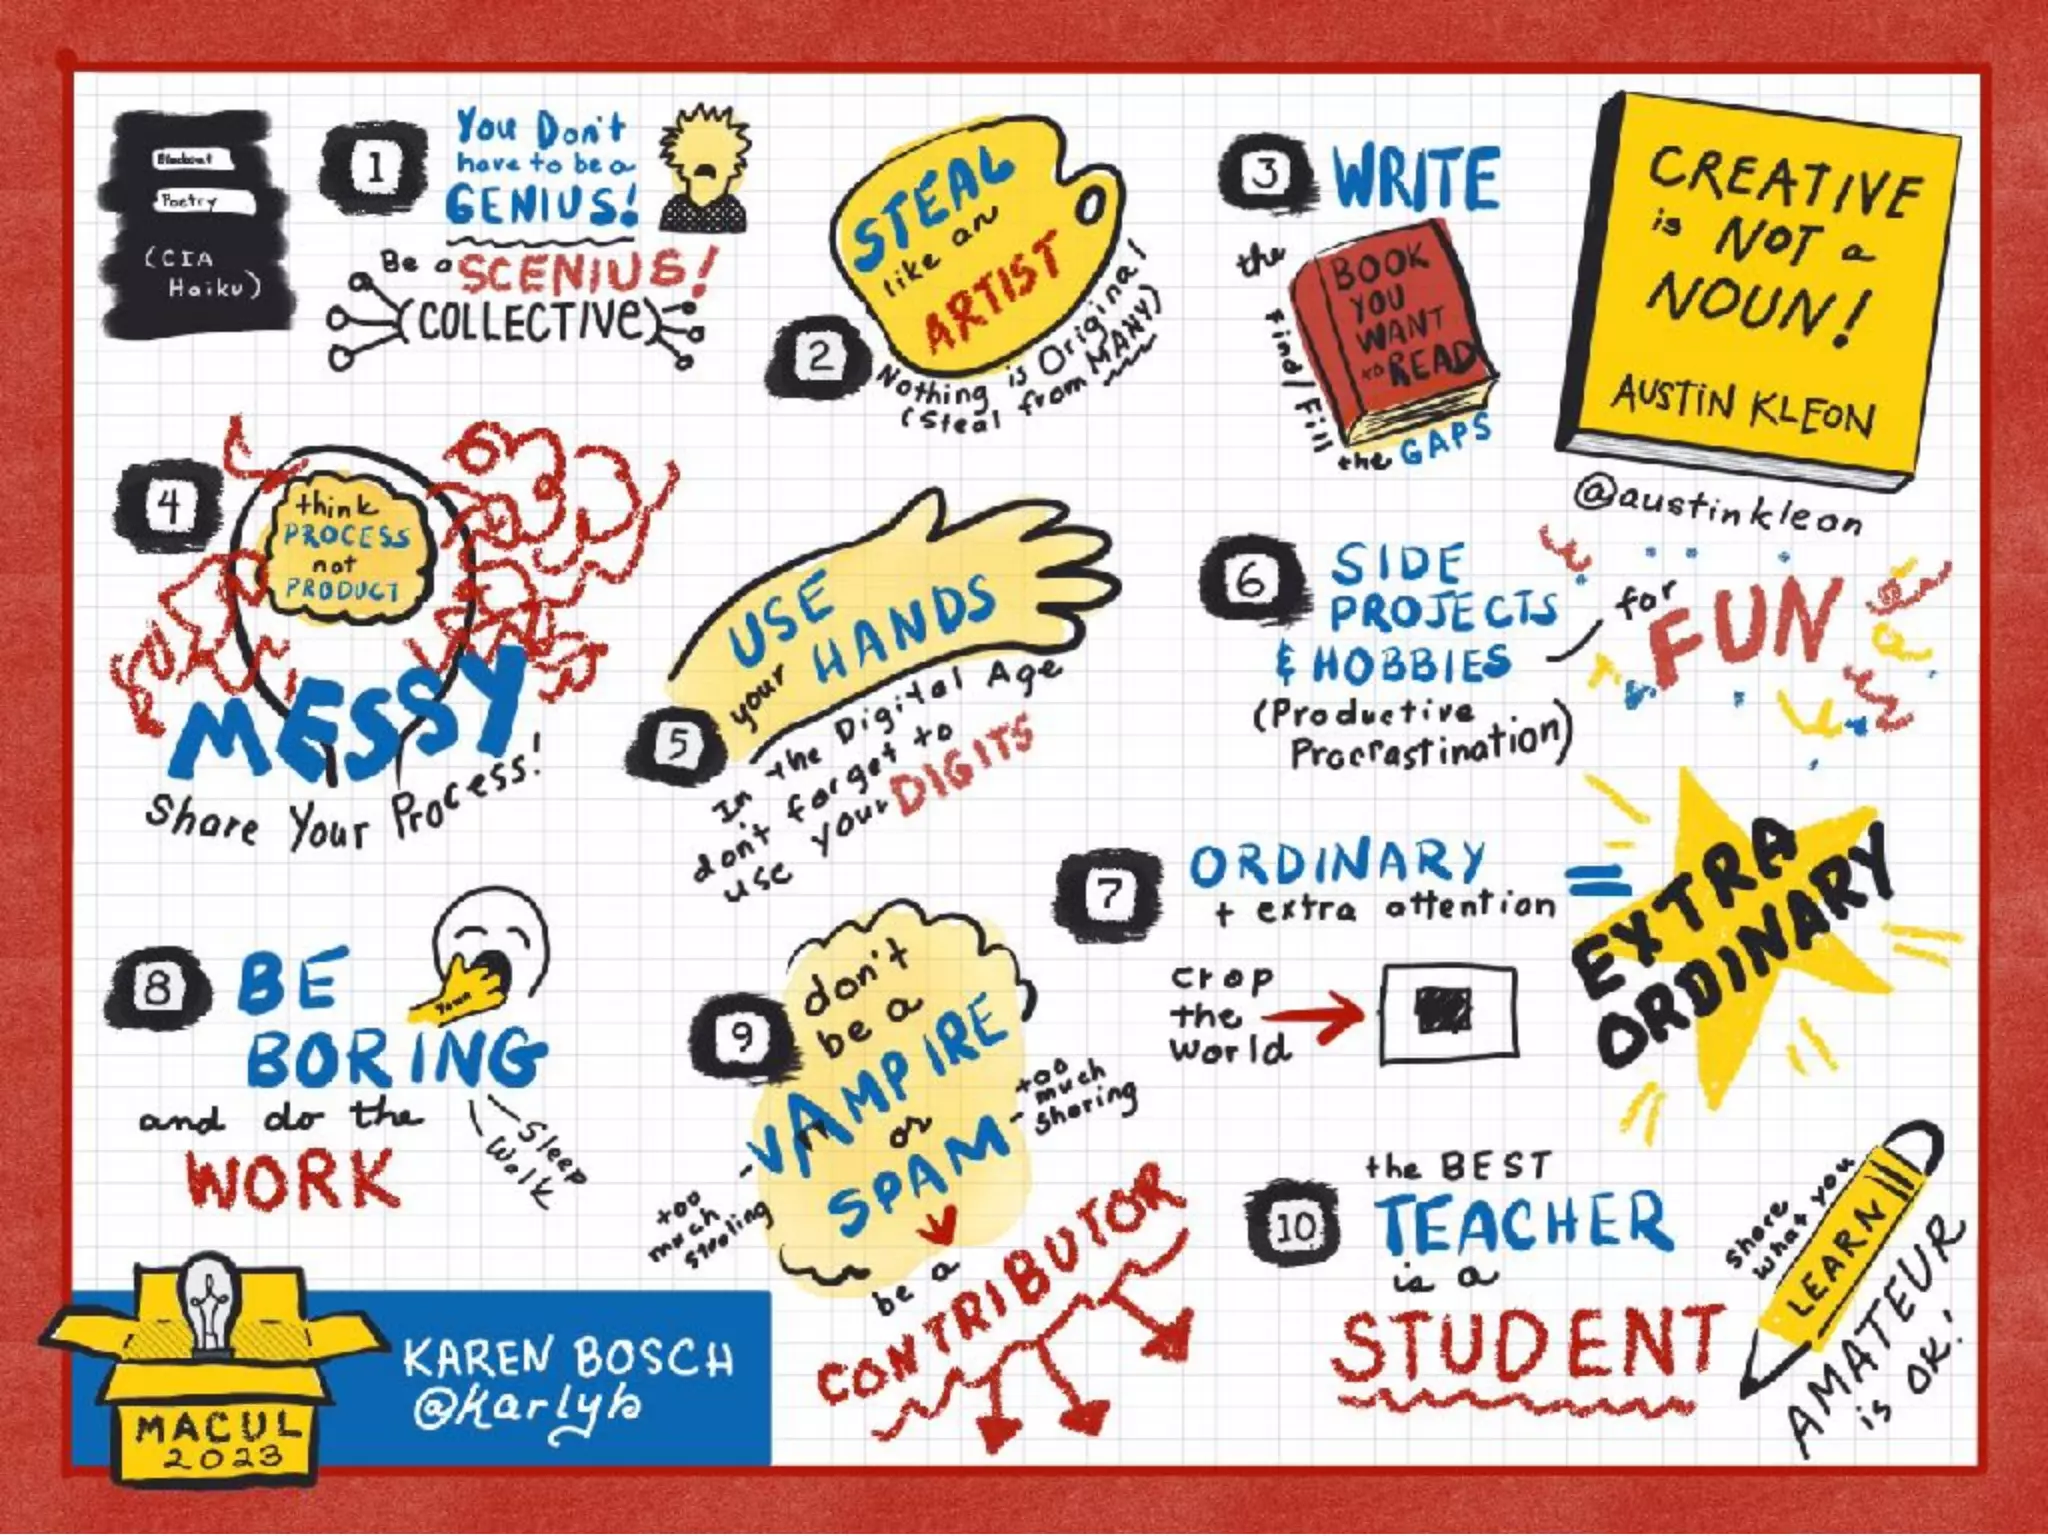 Blackout
Poetry
(CIA
Haiku)
1
You Don't
have to be a
GENIUS!
Be a SCENIUS!
(COLLECTIVE)
2
STEAL
like an
ARTIST
Nothing is Original
(Steal from MANY)
3
WRITE
the
BOOK
YOU
WANT
TO READ
Find/Fill
the GAPS
CREATIVE
is NOT a
NOUN!
AUSTIN KLEON
@austinkleon
4
think
PROCESS
not
PRODUCT
MESSY
Share Your Process!
5
USE
your HANDS
In the Digital Age
don't forget to
use your DIGITS
6
SIDE
PROJECTS
& HOBBIES
for
FUN
(Productive
Procrastination)
7
ORDINARY
+ extra attention
=
EXTRA
ORDINARY
crop
the
world
8
BE
BORING
and do the
WORK
Yawn
Sleep
Walk
9
don't
be a
VAMPIRE
or
SPAM
- too
much
stealing
- too
much
sharing
be a
CONTRIBUTOR
10
the BEST
TEACHER
is a
STUDENT
Share
what you
LEARN
AMATEUR
is OK!
MACUL
2023
KAREN BOSCH
@karlyb